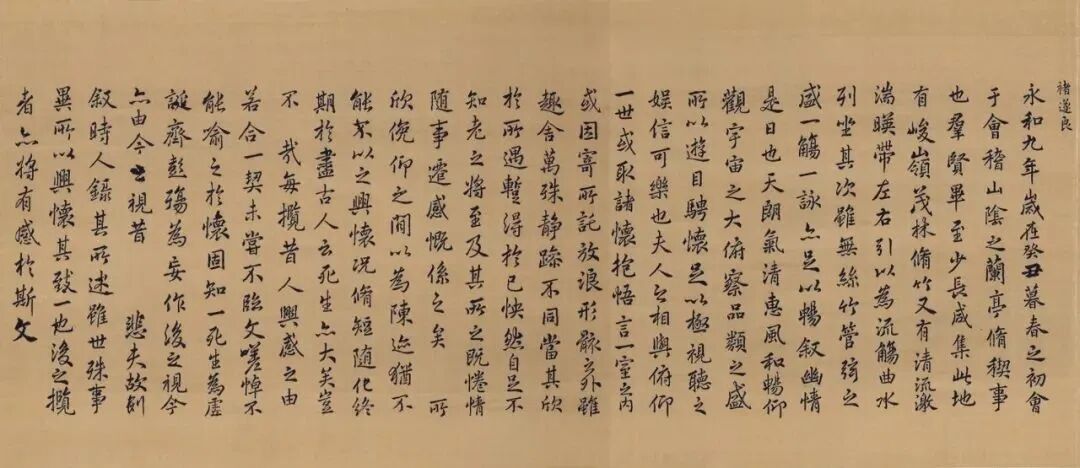 褚遂良
永和九年歲在癸丑暮春之初會
于會稽山陰之蘭亭脩稧事
也羣賢畢至少長咸集此地
有 峻嶺茂林脩竹又有清流激
湍暎帶左右引以為流觴曲水
列坐其次雖無絲竹管弦之
盛一觴一詠亦足以暢叙幽情
是日也天朗氣清惠風和暢仰
觀宇宙之大俯察品類之盛
所以遊目騁懷足以極視聽之
娛信可樂也夫人之相與俯仰
一世或取諸懷抱悟言一室之內
或因寄所託放浪形骸之外雖
趣舍萬殊静躁不同當其欣
於所遇蹔得於己怏然自足不
知老之將至及其所之既惓情
隨事遷感慨係之矣 所
欣俛仰之閒以為陳迹猶不
能不以之興懷況脩短隨化終
期於盡古人云死生亦大矣豈
不 哉每攬昔人興感之由
若合一契未嘗不臨文嗟悼不
能喻之於懷固知一死生為虛
誕齊彭殤為妄作後之視今
亦由今之視昔 悲夫故列
叙時人錄其所述雖世殊事
異所以興懷其致一也後之攬
者亦將有感於斯文